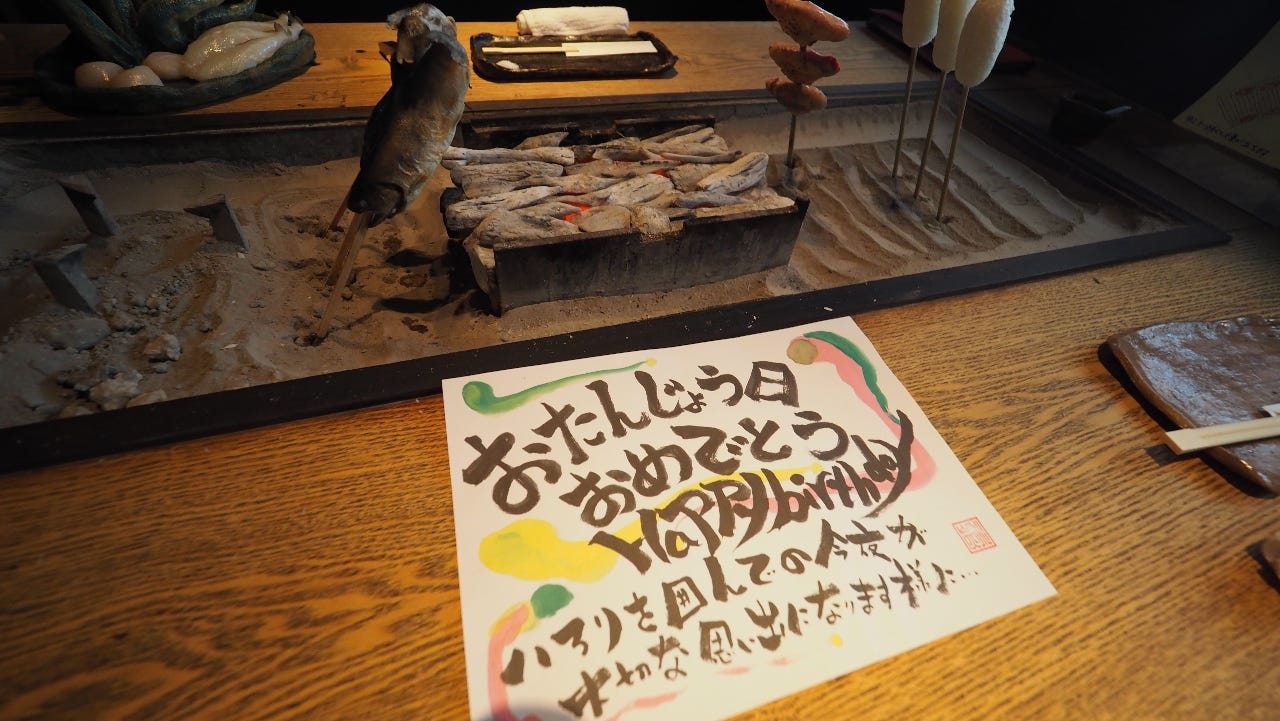 おたんじょう日
おめでとう
HaPPy birthday
いろりを囲んでの今夜が
大切な思い出になります様に…